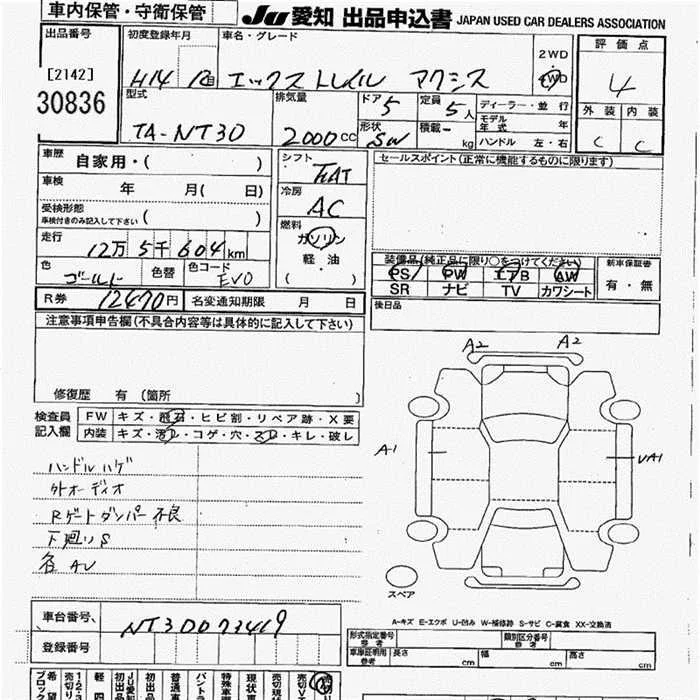 車内保管・守衛保管
JU 愛知 出品申込書 JAPAN USED CAR DEALERS ASSOCIATION
出品番号
[2142]
30836
初度登録年月
H14
車名・グレード
エックストレイル アクシス
2WD
4WD
評価点
4
外装 内装
C C
型式
TA-NT30
排気量
2000cc
ドア 5
形状 SW
定員 5人
積載 - kg
ディーラー・並行
モデル年式 年
ハンドル 左・右
車歴 自家用・( )
車検 年 月( 日)
受検形態
車検付きのみ記入して下さい ( )
走行
12万5千604km
色 ゴールド
色替
色コード EVO
R券 12470円
名変通知期限 月 日
シフト FAT
冷房
AC
燃料
ガソリン
軽・油
( )
セールスポイント(正常に機能するものに限ります)
装備品(純正品に限り○をつけてください)
PS PW エアB AW
SR ナビ TV カワシート
新車保証書
有・無
後日品
注意事項申告欄(不具合内容等は具体的に記入して下さい)
修復歴 有 (箇所 )
検査員
記入欄
FW キズ・飛石・ヒビ割・リペア跡・X要
内装 キズ・汚レ・コゲ・穴・スレ・キレ・破レ
ハンドルハゲ
外オーディオ
Rゲートダンパー不良
下廻りS
各AU
A2 A2
A1
UA1
スペア
A-キズ E-エクボ U-凹み W-補修跡 S-サビ C-腐食 XX-交換済
車台番号 NT30073419
登録番号
形式指定番号
参考
類別区分番号
参考
車庫証明用
参考
長さ cm
幅 cm
高さ cm